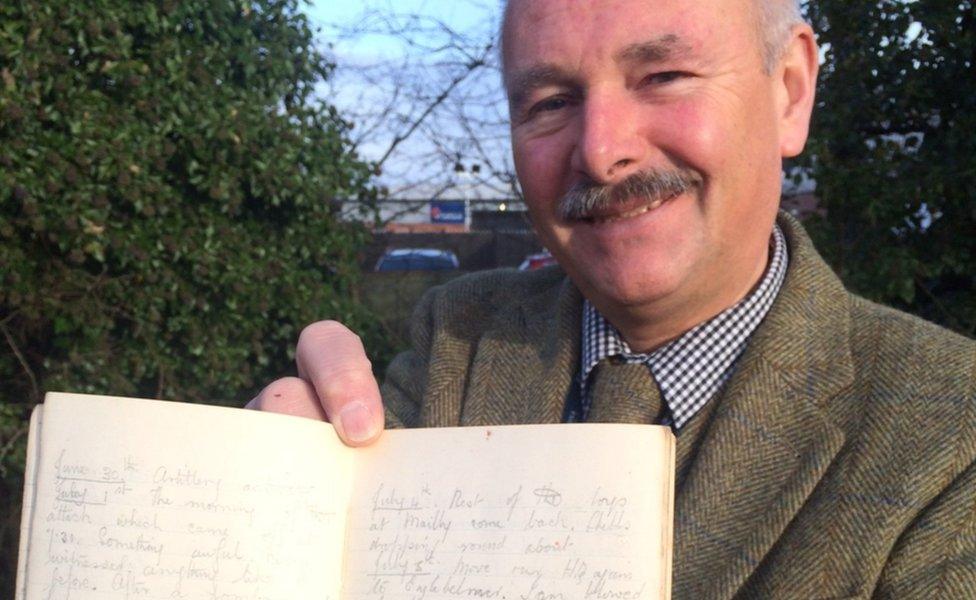 June 30th. Artillery
July 1st The morning of
attack which came
7.31. Something awful
witnessed. anything like
before. After a
July 4th. Rest of boys
at Mailly come back. Shells
dropping round about.
July 5th. Move our HQ again
to Englebelmer. I am